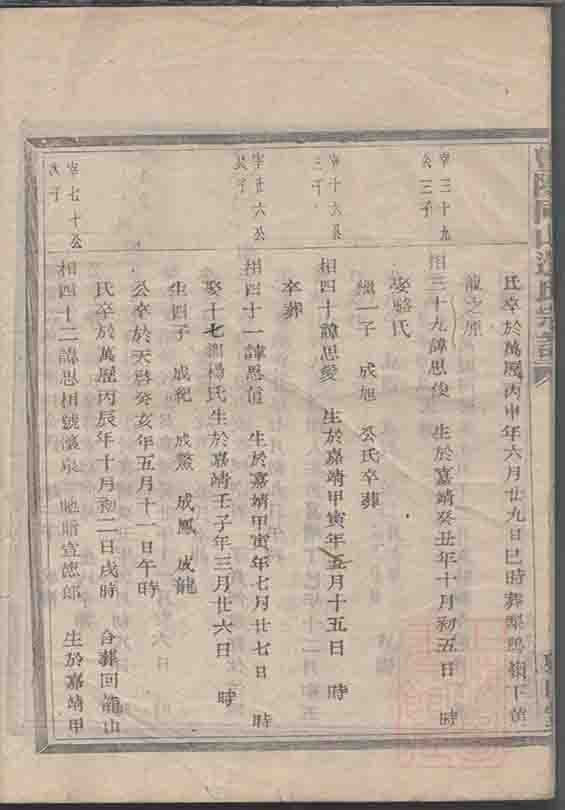 氏卒於萬歷丙申年六月廿九日巳時葬
龍之原
宰三十九公三子
相三十九諱思俊 生於嘉靖癸丑年十月初五日 時
娶駱氏
繼一子 成旭 公氏卒葬
宰十六公三子
相四十諱思愛 生於嘉靖甲寅年五月十五日 時
卒葬
宰廿六公長子
相四十一諱思信 生於嘉靖甲寅年七月廿七日 時
娶十七都楊氏生於嘉靖壬子年三月廿六日 時
生四子 成紀 成鰲 成鳳 成龍
公卒於天啓癸亥年五月十一日午時
氏卒於萬歷丙辰年十月初二日戌時 合葬回龍山
宰七十公次子
相四十二諱思相號濱泉 勅贈宣德郎 生於嘉靖甲